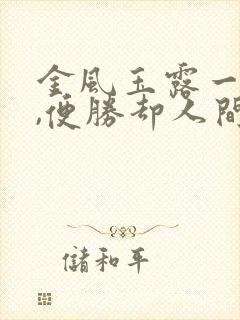 金風玉露一
,便勝却人間
儲和平